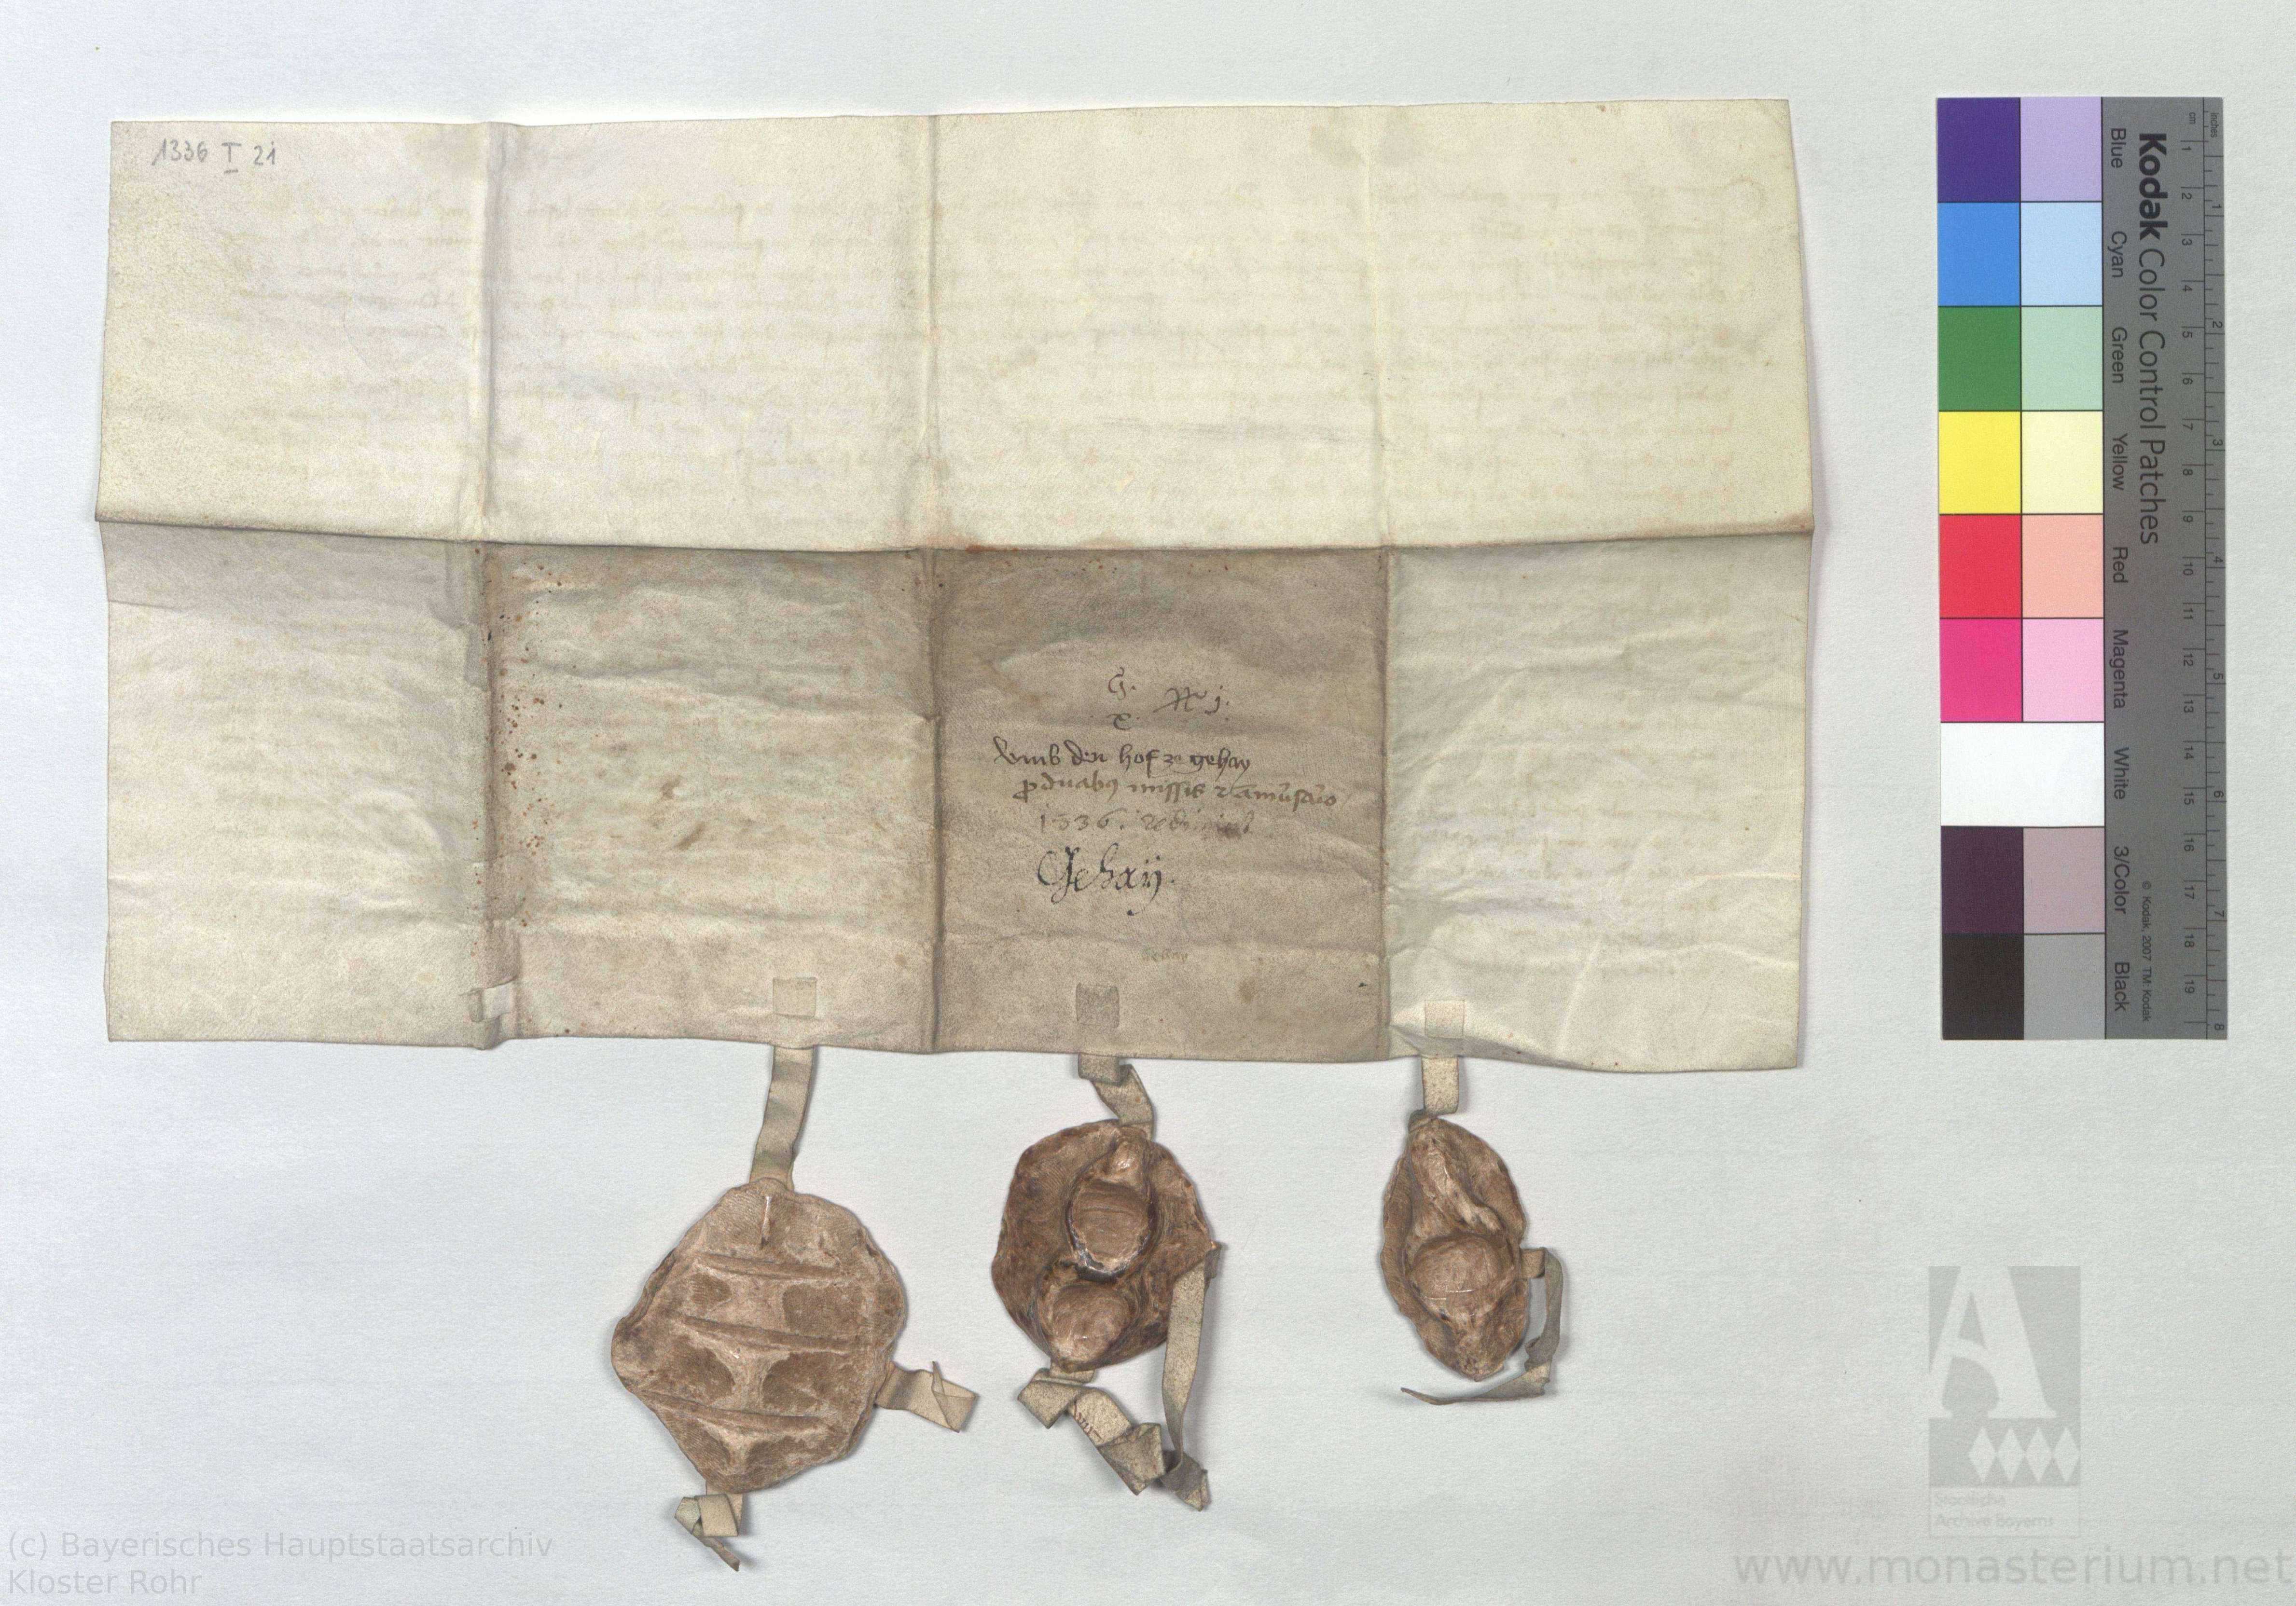 1336 I 21
G. No j.
X.
Vmb den hof ze gehay
pro duabus missis et
1336.
Gehaÿ.
Kodak Color Control Patches
Blue Cyan Green Yellow Red Magenta White 3/Color Black
© Kodak, 2007 TM: Kodak
cm 1 2 3 4 5 6 7 8 9 10 11 12 13 14 15 16 17 18 19
inches 1 2 3 4 5 6 7 8
Staatliche
Archive Bayerns
(c) Bayerisches Hauptstaatsarchiv
Kloster Rohr
www.monasterium.net